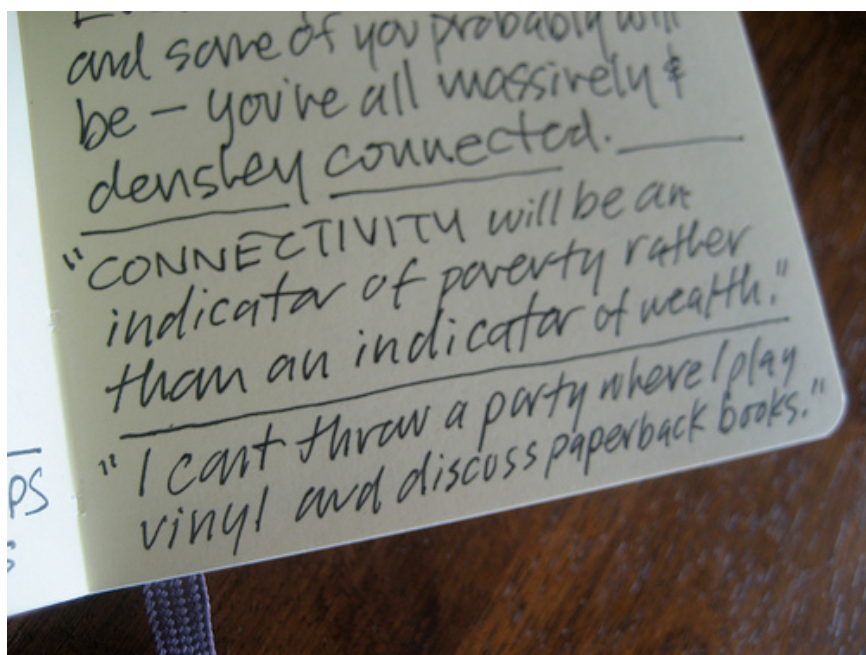 and some of you probably will
be – you've all massively &
densley connected.
"CONNECTIVITY will be an
indicator of poverty rather
than an indicator of wealth."
"I can't throw a party where I play
vinyl and discuss paperback books."
PS